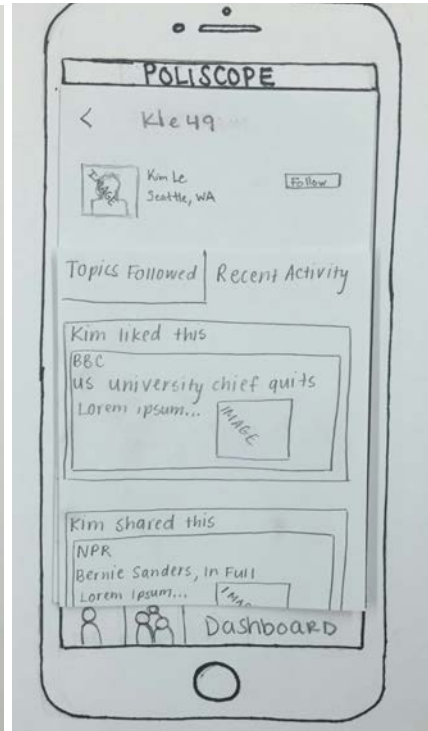 POLISCOPE
< Kle49
IMAGE
Kim Le
Seattle, WA
Follow
Topics Followed
Recent Activity
Kim liked this
BBC
us university chief quits
Lorem ipsum...
IMAGE
Kim shared this
NPR
Bernie Sanders, In Full
Lorem Ipsum...
IMA
DashboaRD